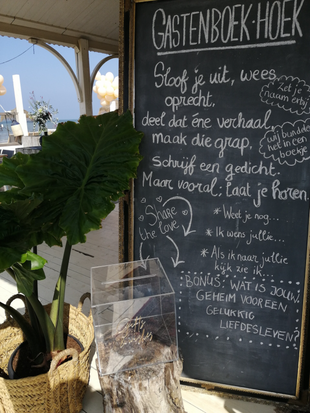 GASTENBOEK·HOEK
Sloof je uit, wees
oprecht,
deel dat éne verhaal
maak die grap,
schrijf een gedicht.
Maar vooral: laat je horen.
Zet je
naam erbij
wij bundelen
het in een
boekje
Share
the love
* Weet je nog...
* Ik wens jullie...
* Als ik naar jullie
kijk zie ik...
BONUS: WAT IS JOUW
GEHEIM VOOR EEN
GELUKKIG
LIEFDESLEVEN?